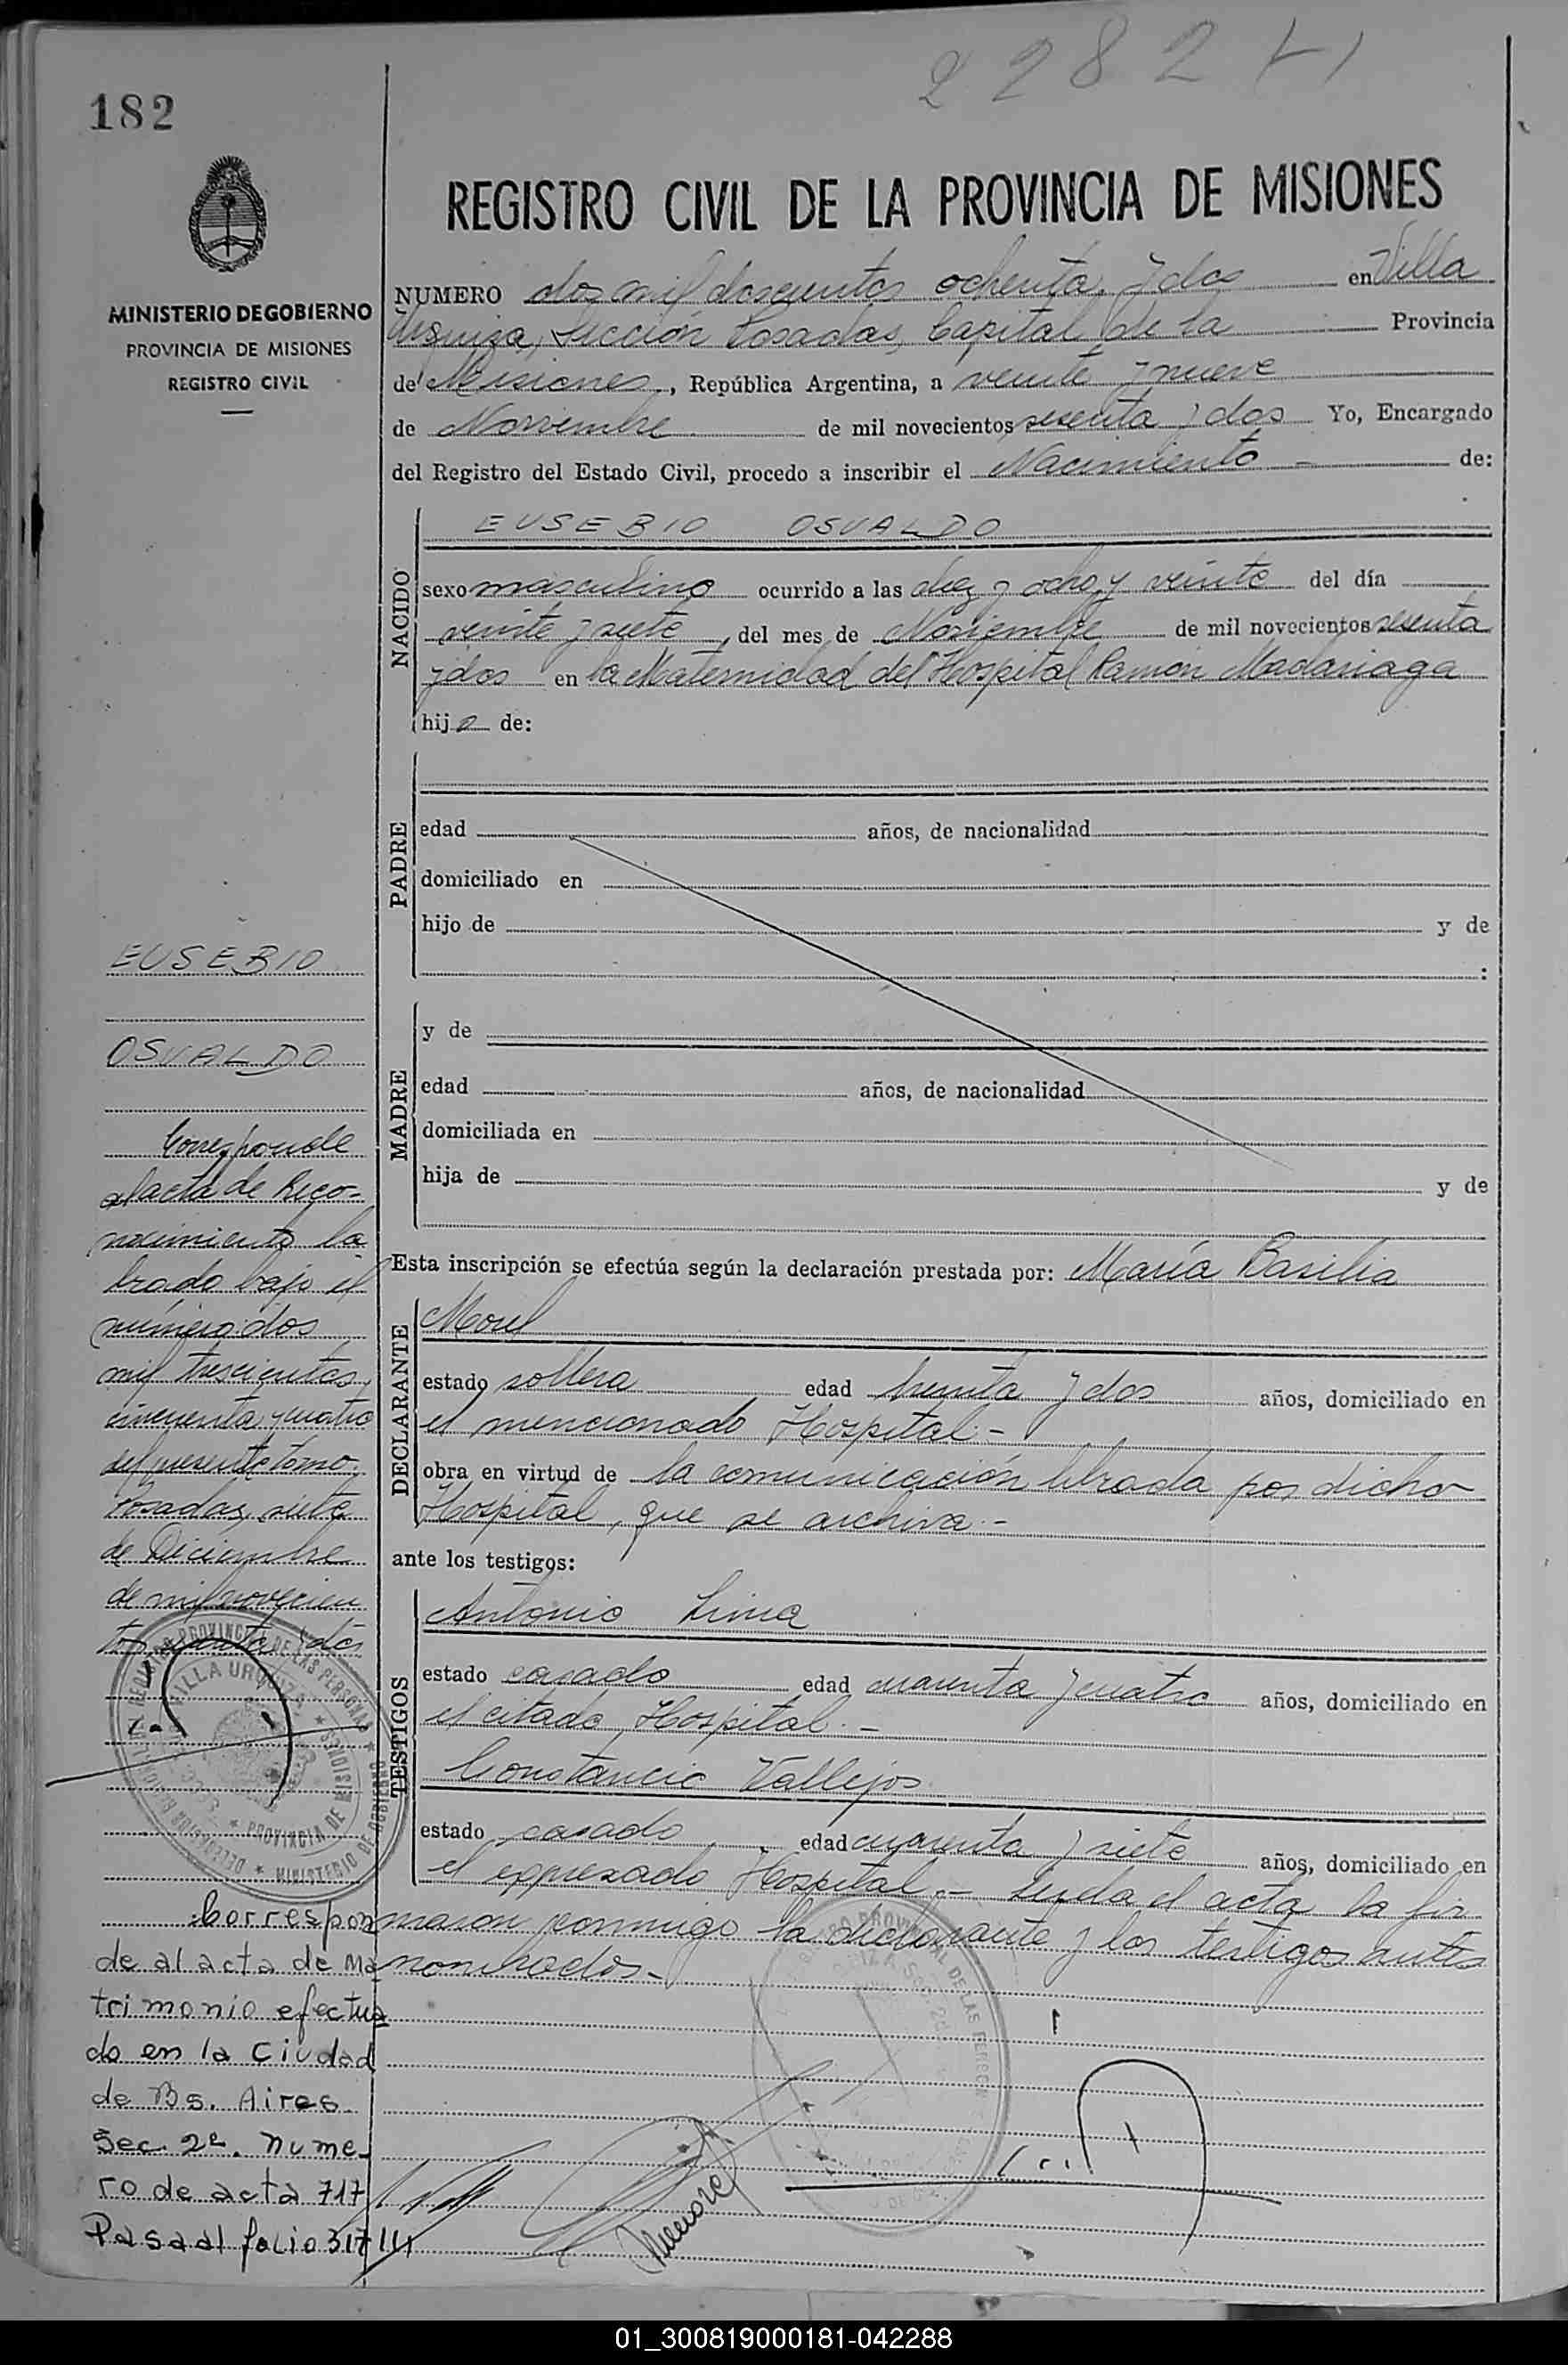 2282
182
REGISTRO CIVIL DE LA PROVINCIA DE MISIONES
MINISTERIO DE GOBIERNO
PROVINCIA DE MISIONES
REGISTRO CIVIL
NUMERO dos mil doscientos ochenta y dos en Villa
Urquiza, Sección Posadas, Capital de la Provincia
de Misiones, República Argentina, a veinte y nueve
de Noviembre de mil novecientos sesenta y dos Yo, Encargado
del Registro del Estado Civil, procedo a inscribir el Nacimiento - de:
NACIDO
EUSEBIO OSVALDO
sexo masculino ocurrido a las diez y ocho y veinte del día
veinte y siete, del mes de Noviembre de mil novecientos sesenta
y dos en la Maternidad del Hospital Ramón Madariaga
hijo de:
PADRE
edad años, de nacionalidad
domiciliado en
hijo de y de
:
MADRE
y de
edad años, de nacionalidad
domiciliada en
hija de y de
Esta inscripción se efectúa según la declaración prestada por: María Basilia
DECLARANTE
Morel
estado soltera edad treinta y dos años, domiciliado en
el mencionado Hospital.-
obra en virtud de la comunicación librada por dicho
Hospital, que se archiva.-
ante los testigos:
TESTIGOS
Antonio Lima
estado casado edad cuarenta y cuatro años, domiciliado en
el citado Hospital.-
Constancio Vallejos
estado casado edad cuarenta y siete años, domiciliado en
el expresado Hospital.- Leyda el acta la fir
maron conmigo la declarante y los testigos antes
nombrados.-
EUSEBIO
OSVALDO
Corresponde
al acta de Reco-
nocimiento la
brado bajo el
número dos
mil trescientos
cincuenta y cuatro
del presente tomo.
Posadas, siete
de Diciembre
de mil novecien
tos sesenta y dos
VILLA URQUIZA
PROVINCIA DE MISIONES
MINISTERIO DE GOBIERNO
Correspon
de al acta de Ma
trimonio efectua
do en la Ciudad
de Bs. Aires.
Sec. 2ª. nume-
ro de acta 717
Pasa al folio 317
01_300819000181-042288